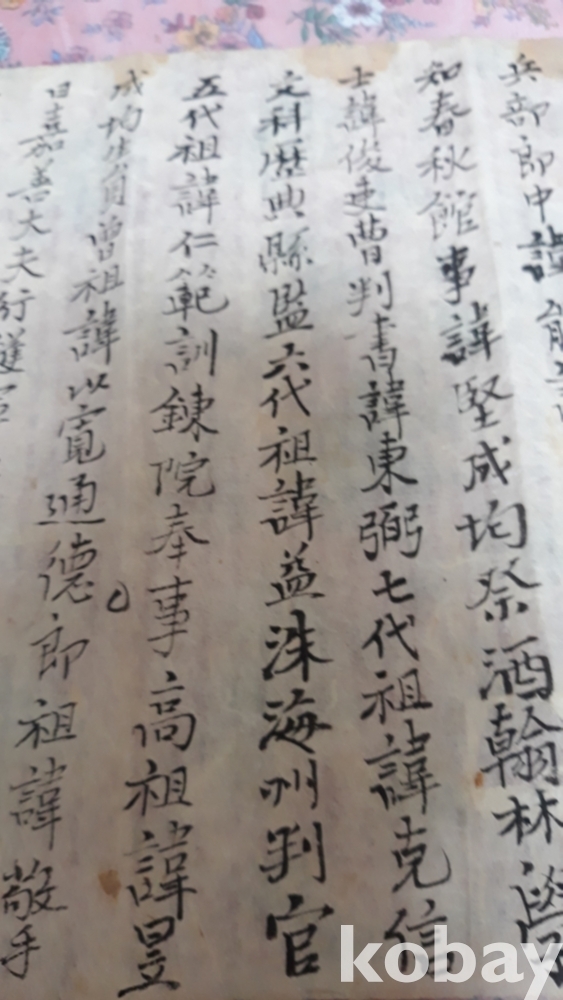 兵部郎中諱
知春秋館事諱堅成均祭酒翰林學
士諱俊吏曹判書諱東弼七代祖諱克信
文科歷典縣監六代祖諱益洙海州判官
五代祖諱仁範訓鍊院奉事高祖諱昱
成均生員曾祖諱以寬通德郎祖諱敬
曰嘉善大夫行護軍
kobay